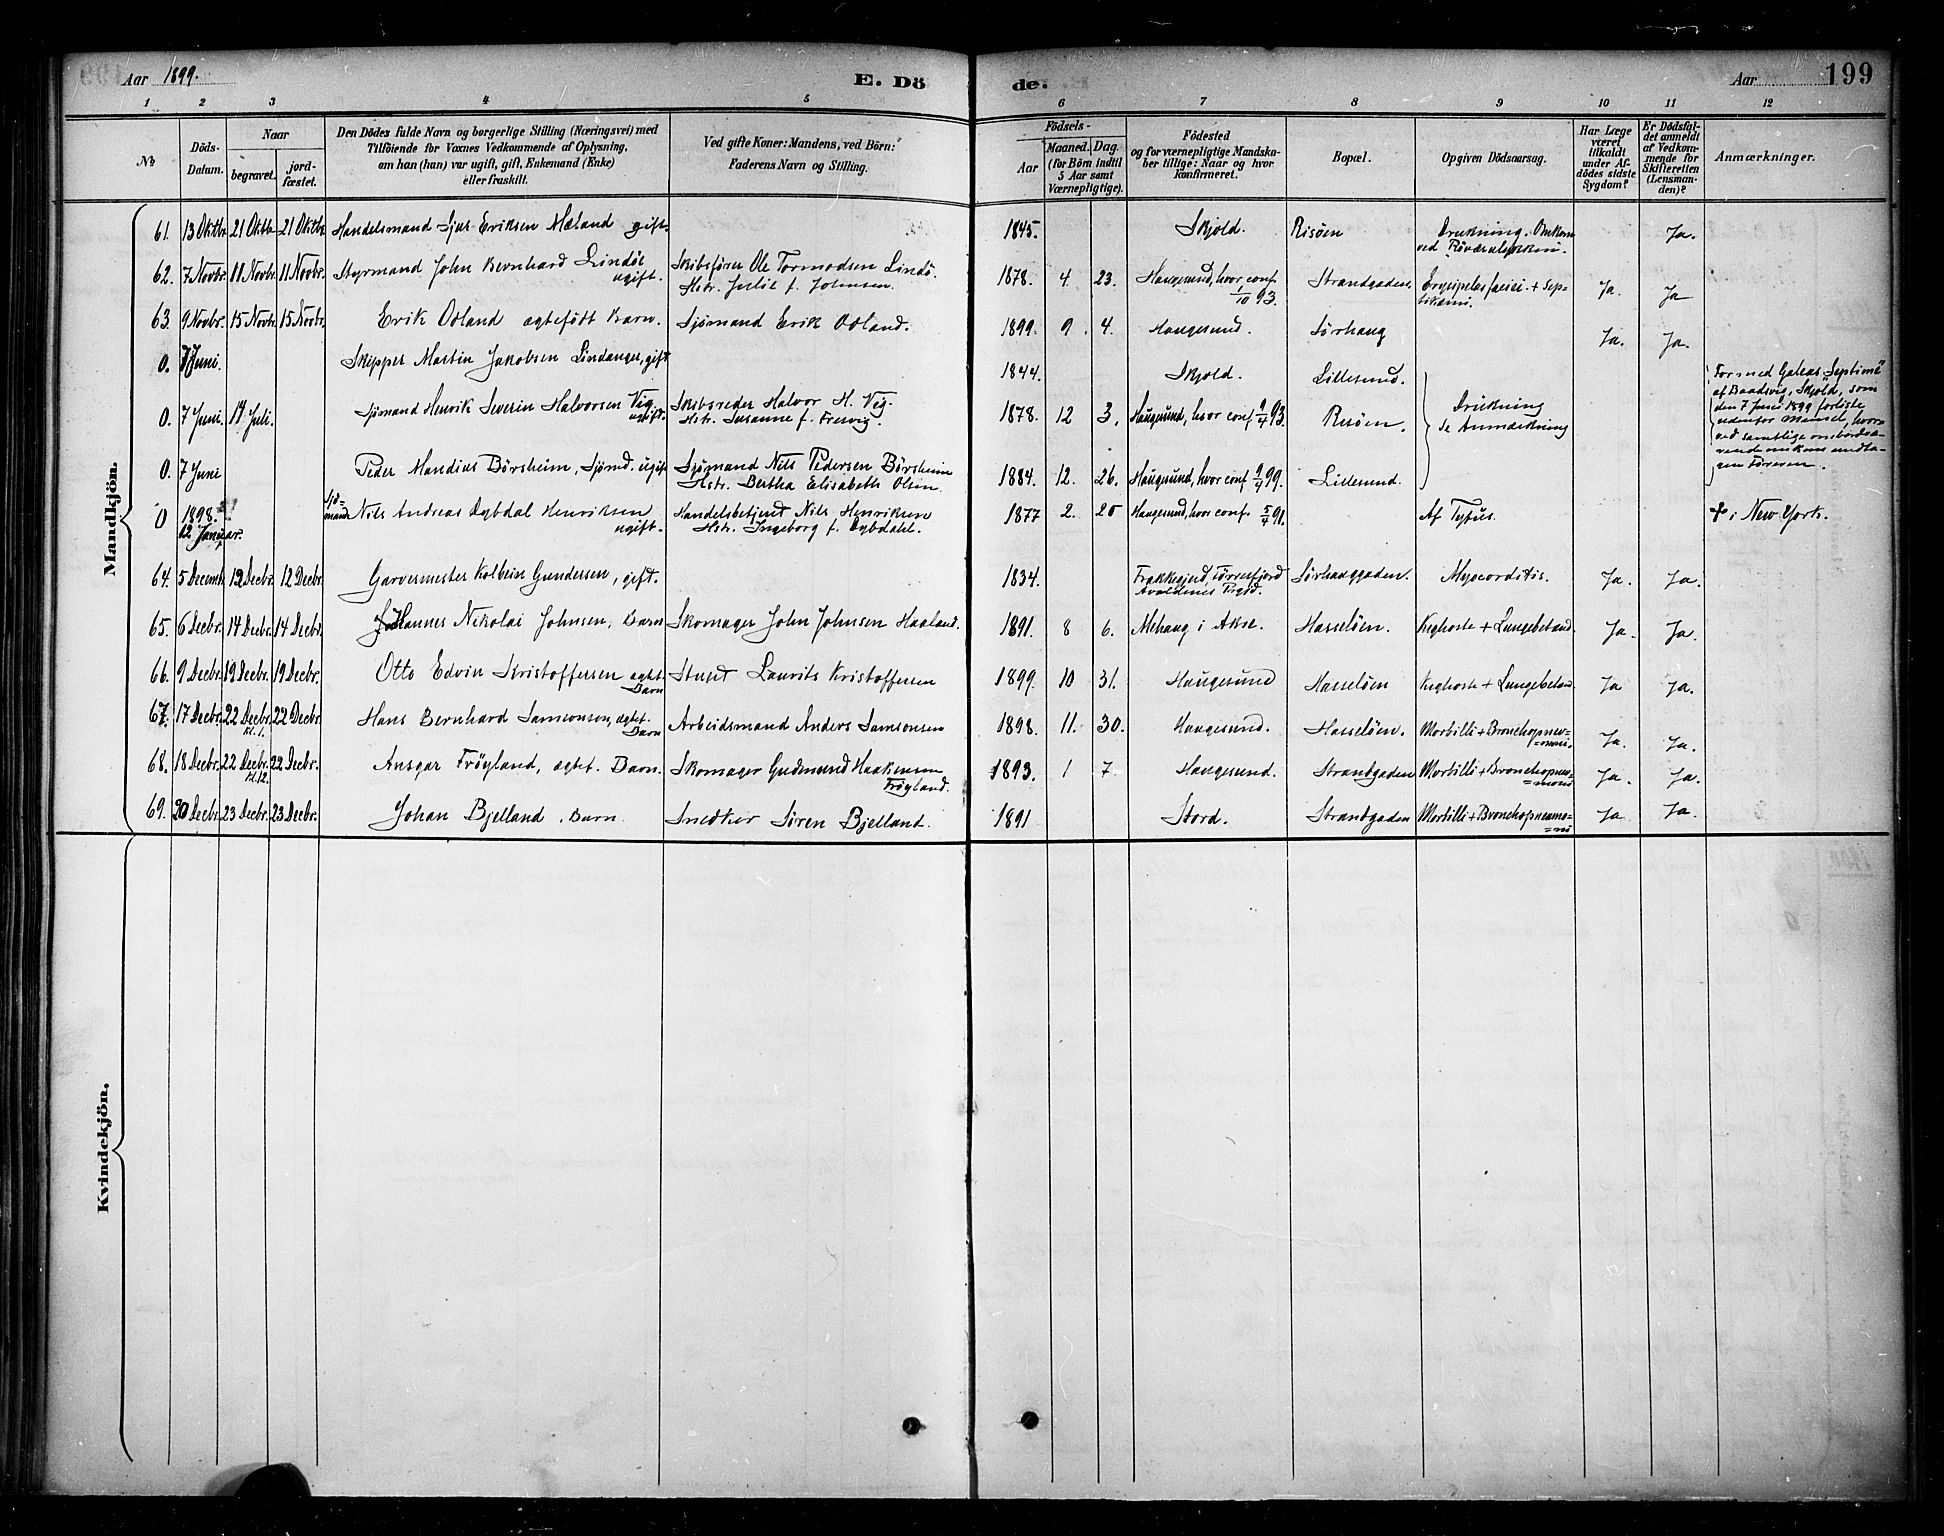 Aar 1899.
E. Döde.
Aar 199
1 2 3 4 5 6 7 8 9 10 11 12
No
Döds-Datum.
Naar
begravet.
jordfæstet.
Den Dödes fulde Navn og borgerlige Stilling (Næringsvei) med
Tilföiende for Voxnes Vedkommende af Oplysning,
om han (hun) var ugift, gift, Enkemand (Enke)
eller fraskilt.
Ved gifte Koner: Mandens, ved Börn:
Faderens Navn og Stilling.
Födsels-
Aar
Maaned. Dag.
(for Börn indtil
5 Aar samt
Værnepligtige).
Födested
og for værnepligtige Mandska-
ber tillige: Naar og hvor
konfirmeret.
Bopæl.
Opgiven Dödsaarsag.
Har Læge
været
tilkaldt
under Af-
dödes sidste
Sygdom?
Er Dödsfal-
det anmeldt
af Vedkom-
mende for
Skifteretten
(Lensman-
den)?
Anmærkninger.
Mandkjön.
61. 13 Oktbr. 21 Oktb 21 Oktbr. Handelsmand Sjur Eriksen Mæland gift. 1845. Skjold. Risöen Drukning. Omkom ved Ja.
62. 7 Novbr. 11 Novbr. 11 Novbr. Styrmand John Bernhard Lindöe ugift. Skibsförer Ole Tormodsen Lindö. Hstr. Julie f. Johnsen. 1878. 4 23. Haugesund, hvor conf. 1/10 93. Strandgaden. Erysipelas faciei + Septikæmi. Ja. Ja
63. 9 Novbr. 15 Novbr. 15 Novbr. Erik Odland ægtefödt Barn. Sjömand Erik Odland. 1899. 9. 4. Haugesund. Sörhaug Ja. Ja.
0. 7 Juni. Skipper Martin Jakobsen Lindanger, gift 1844. Skjold. Lillesund.
0. 7 Juni. 17 Juli. Sjömand Henrik Severin Halvorsen Vig. ugift. Skibsreder Halvor H. Vig. Hstr. Susanne f. 1878. 12 3. Haugesund, hvor conf. 9/4 93. Risöen. Drukning se Anmærkning
For med Galeas "Septimi" af Baadsvig, Skjold, som den 7 Juni 1899 forliste udenfor hvorved samtlige ombordværende omkom undtagen Föreren.
0. 7 Juni Peder Mandius Börsheim, Sjömd. ugift Sjömand Nils Pedersen Börsheim Hstr. Bertha Elisabeth Olsen. 1884. 12. 26. Haugesund, hvor conf. 9/4 99. Lillesund.
0 1898. 12 Januar. Sjömand Nils Andreas Dybdal Henriksen ugift. Handelsbetjent Nils Henriksen Hstr. Ingeborg f. Dybdahl. 1877 2. 25 Haugesund, hvor conf. 5/4 91. Af Tyfus. † i New York.
64. 5 Decembr 12 Decbr. 12 Decbr. Garvermester Kolbein Gundersen, gift. 1834. Frakkagjerd, Förresfjord Avaldsnes Prgjd. Sörhauggaden. Myocarditis. Ja. Ja.
65. 6 Decbr. 14 Decbr. 14 Decbr. Johannes Nikolai Johnsen, Barn Skomager John Johnsen Haaland. 1891. 8 6. Mehaug i Akse. Hasselöen. Kighoste + Lungebetænd. Ja. Ja.
66. 9 Decbr. 19 Decbr. 19 Decbr. Otto Edvin Kristoffersen ægt. Barn Stuert Laurits Kristoffersen 1899. 10 31. Haugesund Hasselöen Kighoste + Lungebetænd. Ja Ja.
67. 17 Decbr. 22 Decbr. kl. 1. 22 Decbr. Hans Bernhard Samsonsen, ægt. Barn Arbeidsmand Anders Samsonsen 1898. 11. 30. Haugesund. Hasselöen. Morbilli + Bronchopneu=moni. Ja. Ja.
68. 18 Decbr. 22 Decbr. kl. 12. 22 Decbr. Ansgar Fröyland, ægtef. Barn. Skomager Gudmund Haakonsen Fröyland. 1893. 1 7. Haugesund. Strandgaden Morbilli + Bronchopneu=moni Ja. Ja.
69. 20 Decbr. 23 Decbr. 23 Decbr. Johan Bjelland, Barn. Snedker Sören Bjelland. 1891 Stord. Strandgaden Morbilli + Bronchopneumo=ni Ja Ja.
Kvindekjön.